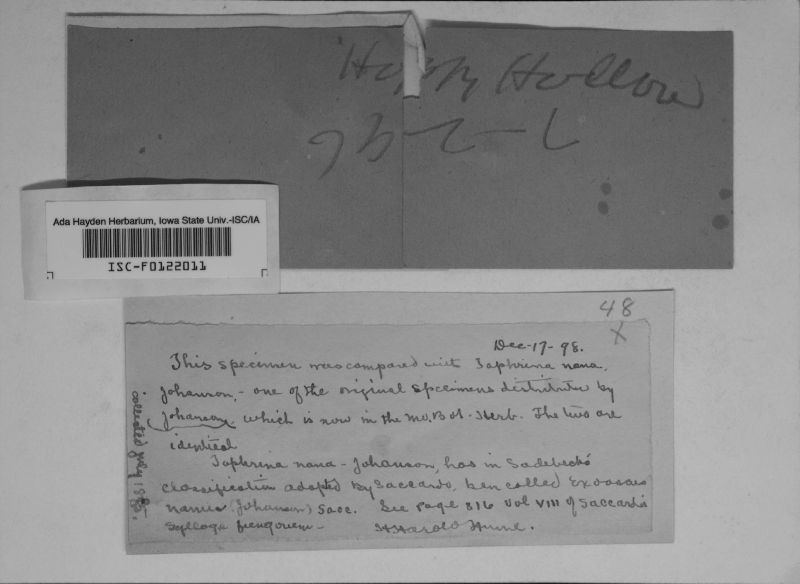 Happy Hollow
Ada Hayden Herbarium, Iowa State Univ.-ISC/IA
ISC-F0122011
48
X
Dec-17-98.
This specimen was compared with Taphrina nana,
Johanson, - one of the original specimens distributed by
Johanson, which is now in the Mo. Bot. Herb. The two are
identical
Taphrina nana - Johanson, has in Sadebeck's
classification adopted by Saccardo, been called Exoascus
nanus (Johanson) Sacc. See page 816 Vol VIII of Saccardo's
Sylloge fungorum -
H. Harold Hume.
collected July